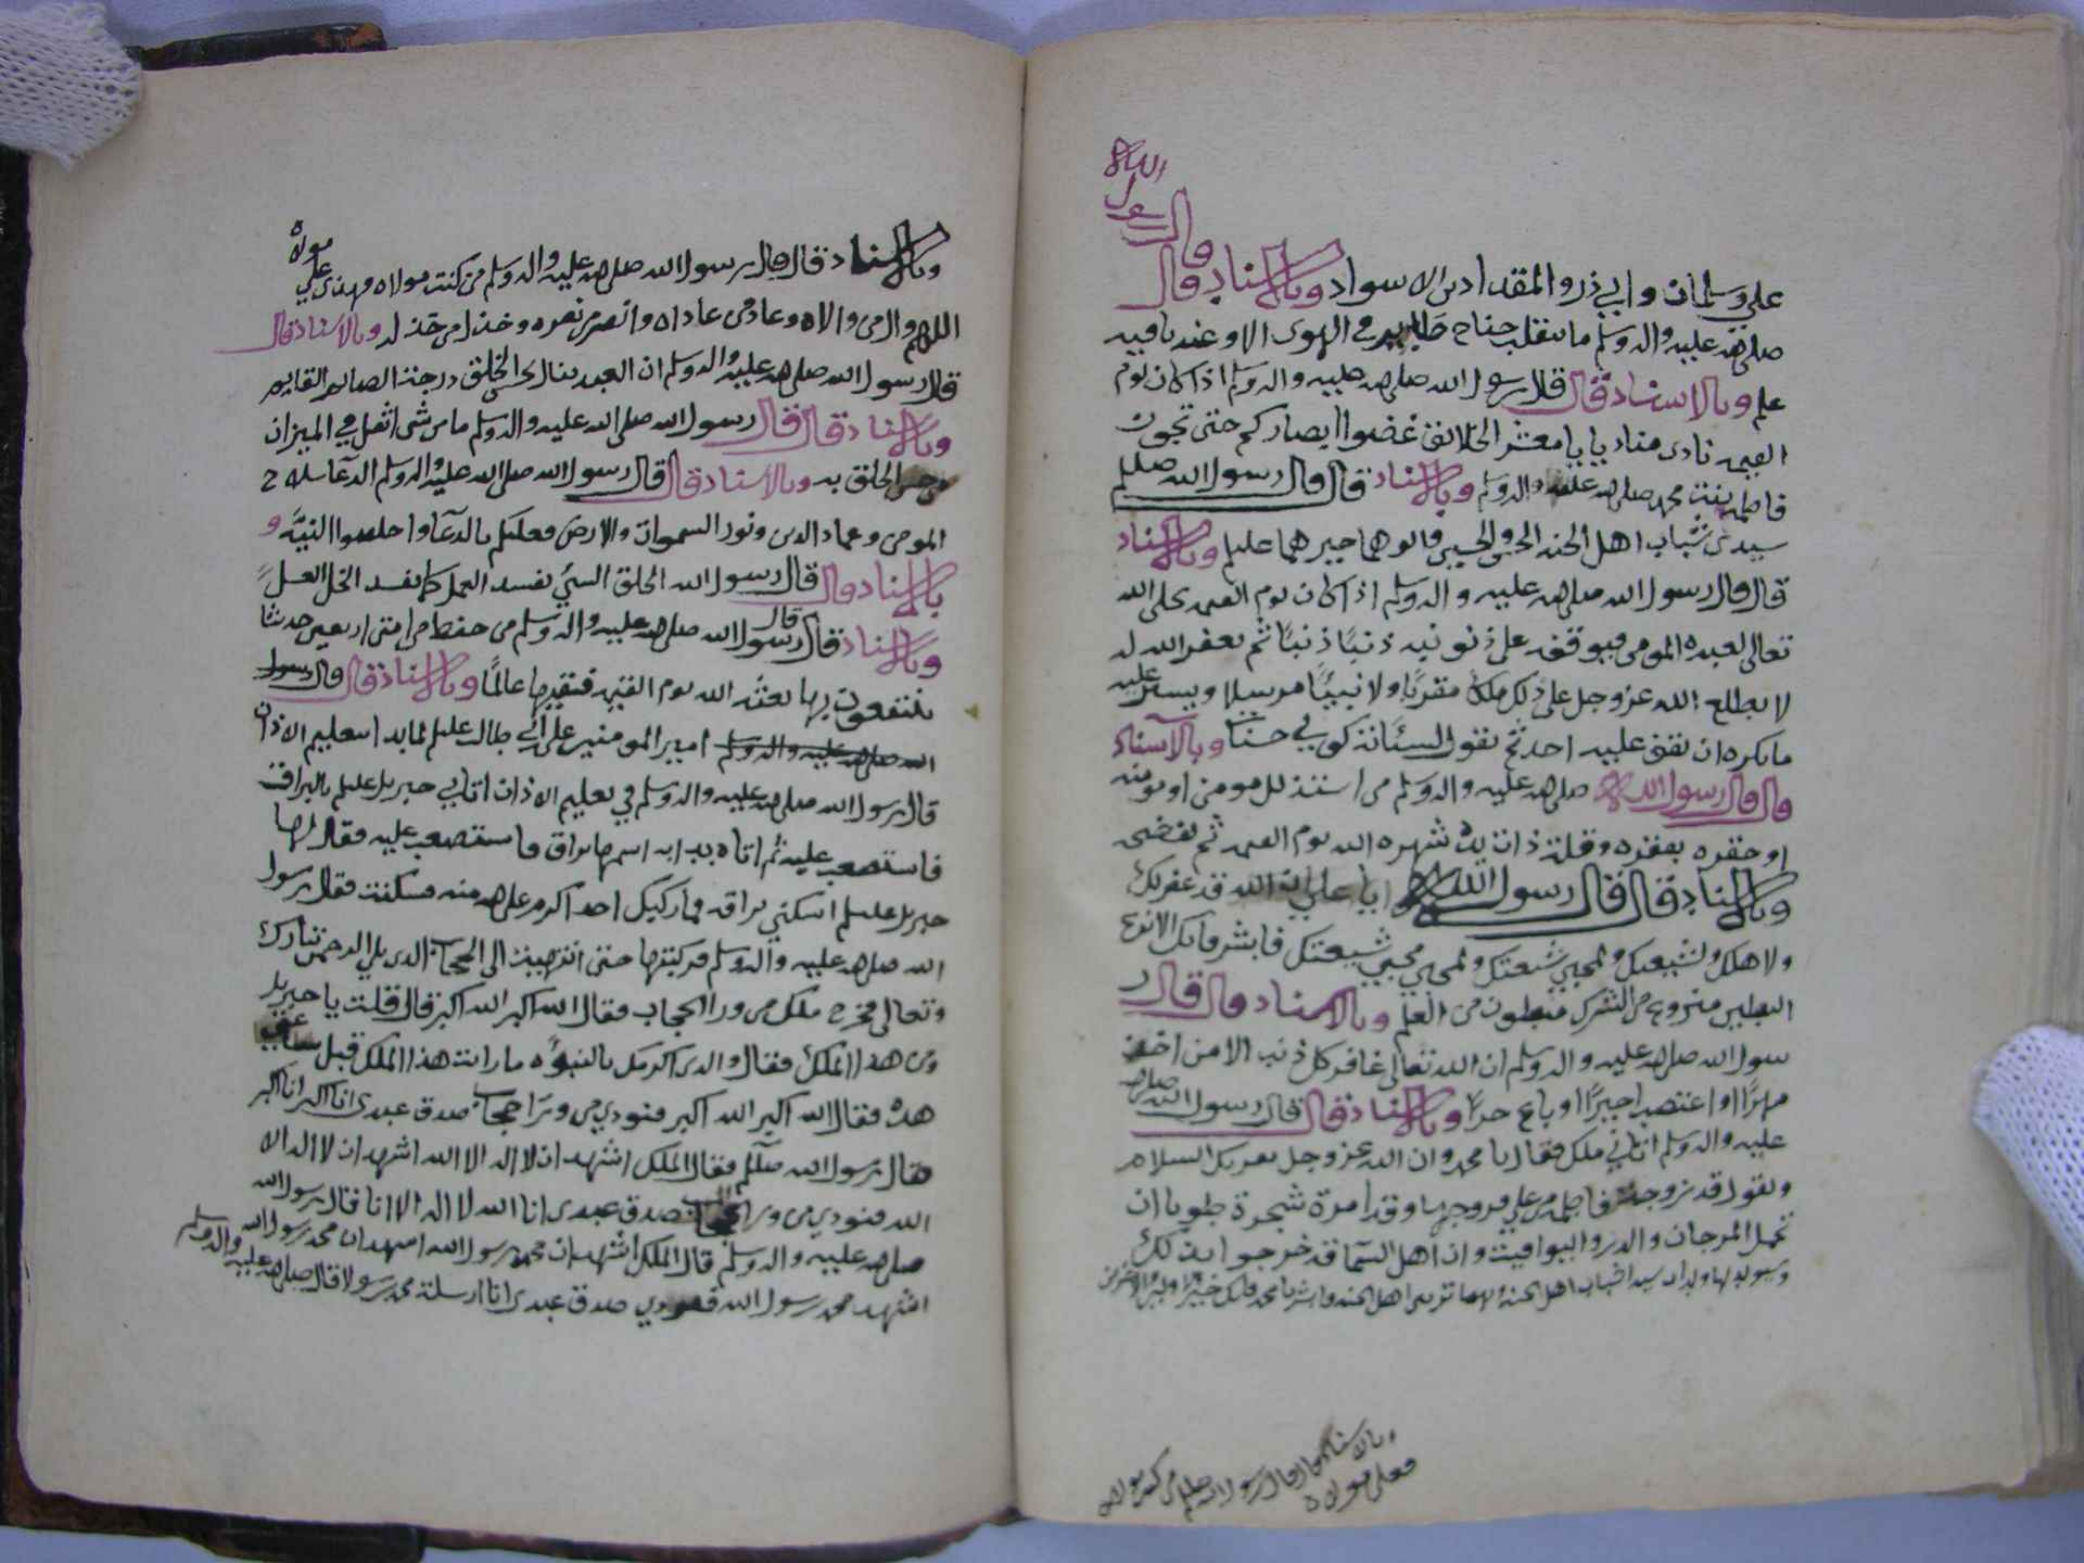 علي وسلمان وابي ذر والمقداد بن الاسواد وبالاسناد قال قال رسول الله
صلى الله عليه واله وسلم ما ينقلب جناح طاير في الهوى الا وعندنا فيه
علم وبالاسناد قال قال رسول الله صلى الله عليه واله وسلم اذا كان يوم
القيمه نادى مناد يا يا معشر الخلائق غضوا ابصاركم حتى تجوز
فاطمه بنت محمد صلى الله عليه واله وسلم وبالاسناد قال قال رسول الله صلعم
سيدى شباب اهل الجنه الحسن والحسين وابوهما خير هما عليلم وبالاسناد
قال قال رسول الله صلى الله عليه واله وسلم اذا كان يوم القيمه تجلى الله
تعالى لعبده المومن فيوقفه على ذنوبه ذنبًا ذنبًا ثم يغفر الله له
لا يطلع الله عز وجل على ذلك ملكا مقربًا ولا نبيًا مرسلا ويستر عليه
ما يكره ان يقف عليه احد ثم يقول لسيئاته كوني حسنا وبالاسناد
قال قال رسول الله صلى الله عليه واله وسلم من استذل مومن او مومنه
او حقره بفقره وقلة ذات يده شهره الله يوم القيمه ثم يفضحه
وبالاسناد قال قال رسول الله يا علي ان الله قد غفر لك
ولاهلك ولشيعتك ولمحبي شيعتك ولمحبي محبي شيعتك فابشر فانك الانزع
البطين منزوع من الشرك مبطون من العلم وبالاسناد قال قال ر
سول الله صلى الله عليه واله وسلم ان الله تعالى غافر كل ذنب الا من اخذ
مهرًا او اغتصب اجيرًا او باع حرًا وبالاسناد قال قال رسول الله صلى الله
عليه واله وسلم اتاني ملك فقال يا محمد ان الله عز وجل يقريك السلام
ويقول قد زوجت فاطمه من علي فزوجها وقد امرة شجرة طوبا ان
تحمل المرجان والدر واليواقيت وان اهل السما قد فرحوا لذلك
وسيولد لها ولدان سيدا شباب اهل الجنة بهما تزين اهل الجنه وابشر يا محمد فانك خير الاولين والاخرين
وبالاسناد قال قال رسول الله صلعم من كنت مولاه
فعلي مولاه
وبالاسناد قال قال رسول الله صلى الله عليه واله وسلم من كنت مولاه فهذى علي مولاه
اللهم وال من والاه وعاد من عاداه وانصر من نصره وخذل من خذله وبالاسناد قال
قال رسول الله صلى الله عليه واله وسلم ان العبد لينال بحسن الخلق درجة الصائم القايم
وبالاسناد قال قال رسول الله صلى الله عليه واله وسلم ما من شى اثقل في الميزان
من حسن الخلق به وبالاسناد قال قال رسول الله صلى الله عليه واله وسلم الدعا سلاح
المومن وعماد الدين ونور السموات والارض فعليكم بالدعا واخلصوا النيه و
بالاسناد قال قال رسول الله الخلق السيئ يفسد العمل كما يفسد الخل العسل
وبالاسناد قال قال رسول الله صلى الله عليه واله وسلم من حفظ من امتى اربعين حديثا
ينتفعون بها بعثه الله يوم القيمه فقيها عالمًا وبالاسناد قال قال رسول
الله صلى الله عليه واله وسلم امير المومنين علي ابي طالب عليلم لما بدا تعليم الاذان
قال رسول الله صلى الله عليه واله وسلم في تعليم الاذان اتاني جبريل عليلم بالبراق
فاستصعب عليه ثم اتاه بدابه اسمها براق فاستصعب عليه فقال لها
جبريل عليلم اسكني براقه فما ركبك احد اكرم على الله منه فسكنت فقال رسول
الله صلى الله عليه واله وسلم فركبتها حتى انتهيت الى الحجاب الذى يلي الرحمن تبارك
وتعالى فخرج ملك من ورا الحجاب فقال الله اكبر الله اكبر قال قلت يا جبريل
ومن هذا الملك فقال والذى اكرمك بالنبوه ما رايت هذا الملك قبل ساعتي
هذه فقال الله اكبر الله اكبر فنودي من ورا حجاب صدق عبدى انا اكبر انا اكبر
فقال رسول الله صلعم فقال الملك اشهد ان لا اله الا الله اشهد ان لا اله الا
الله فنودي من ورا الحجاب صدق عبدى انا الله لا اله الا انا فقال رسول الله
صلى الله عليه واله وسلم قال الملك اشهد ان محمد رسول الله اشهد ان محمد رسول الله
اشهد محمد رسول الله فنودي صدق عبدى انا ارسلة محمد رسولا قال صلى الله عليه واله وسلم